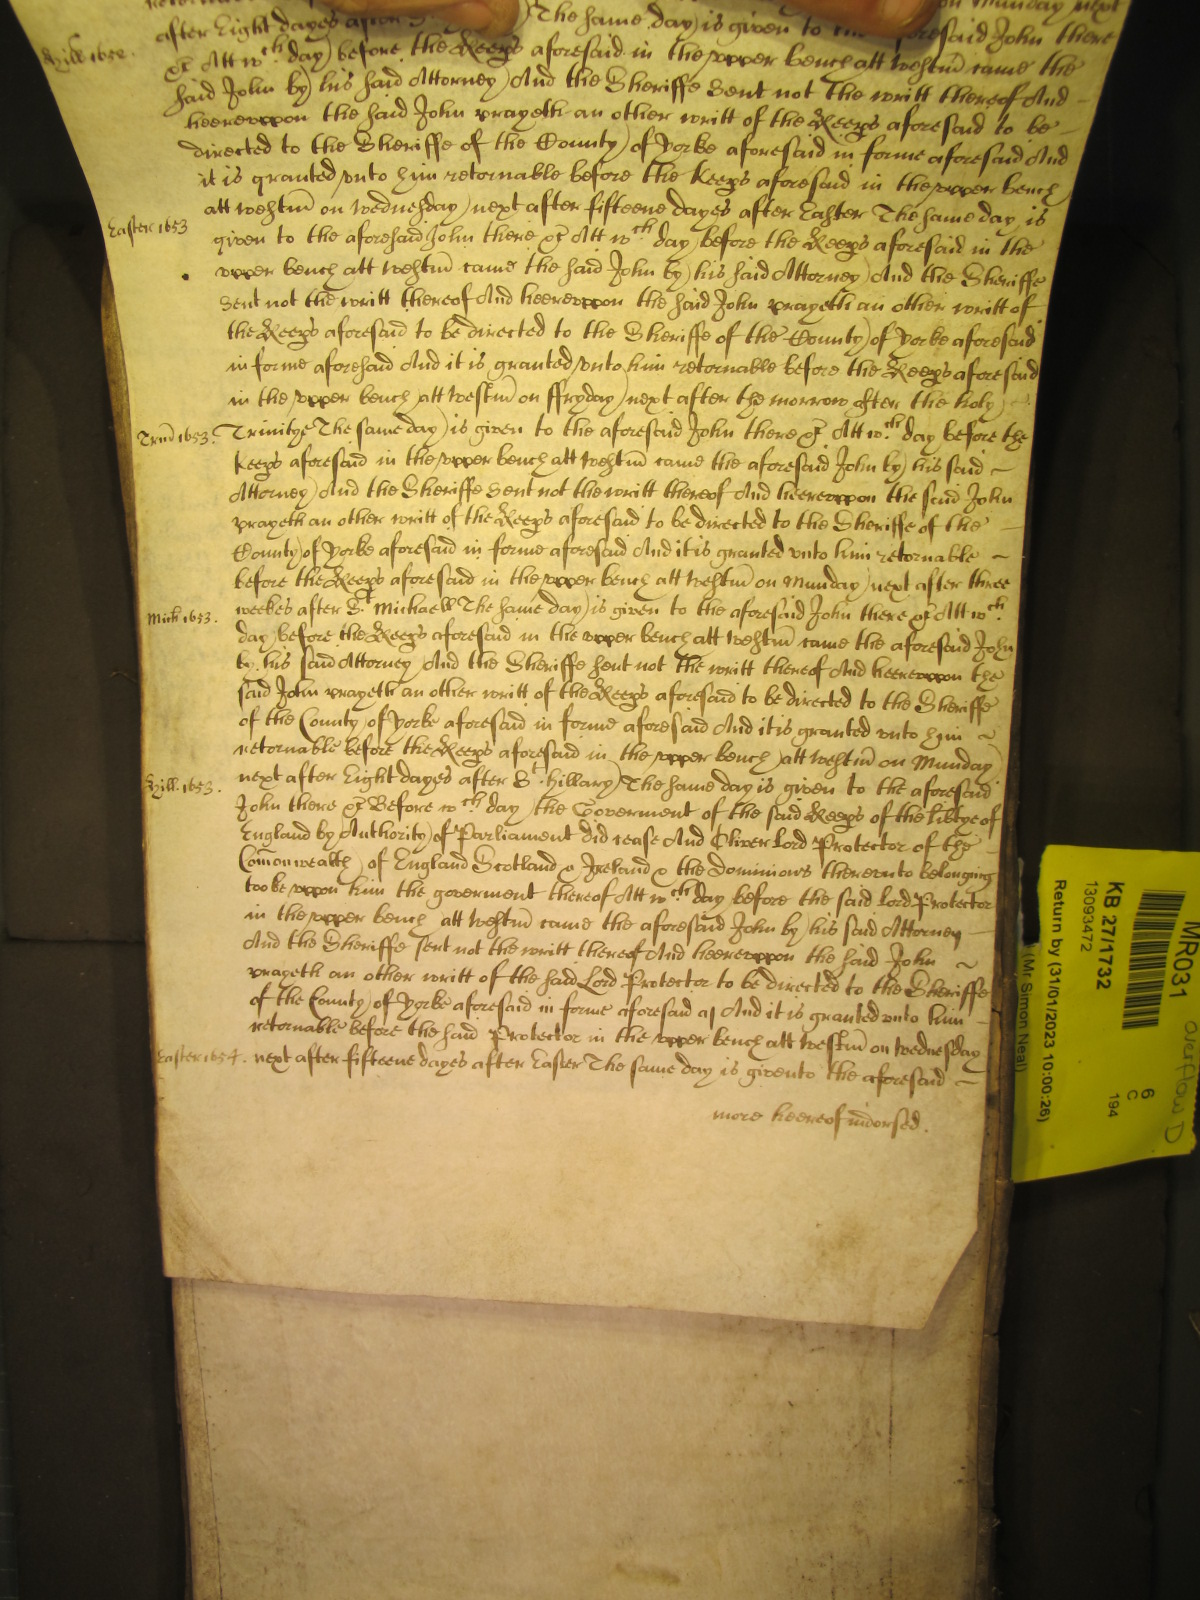 on Munday next
after Eight dayes after S The same day is given to the aforesaid John there
Hill. 1652.
&c Att wch day before the Keeps aforesaid in the upper bench att Westm̄ came the
said John by his said Attorney And the Sheriffe Sent not the writt thereof And
heereuppon the said John prayeth an other writt of the Keeps aforesaid to be
directed to the Sheriffe of the County of Yorke aforesaid in forme aforesaid And
it is granted unto hym retornable before the Keeps aforesaid in the upper bench
att Westm̄ on Wednesday next after fifteene dayes after Easter The same day is
Easter 1653
given to the aforesaid John there &c Att wch day before the Keeps aforesaid in the
upper bench att Westm̄ came the said John by his said Attorney And the Sheriffe
Sent not the writt thereof And heereuppon the said John prayeth an other writt of
the Keeps aforesaid to be directed to the Sheriffe of the County of Yorke aforesaid
in forme aforesaid And it is granted unto him retornable before the Keeps aforesaid
in the upper bench att Westm̄ on ffryday next after the morrow after the holy
Trin̄ 1653.
Trinitye The same day is given to the aforesaid John there &c Att wch day before the
Keeps aforesaid in the upper bench att Westm̄ came the aforesaid John by his said
Attorney And the Sheriffe Sent not the writt thereof And heereuppon the said John
prayeth an other writt of the Keeps aforesaid to be directed to the Sheriffe of the
County of Yorke aforesaid in forme aforesaid And it is granted unto him retornable
before the Keeps aforesaid in the upper bench att Westm̄ on Munday next after three
weekes after St Michaell The same day is given to the aforesaid John there &c Att wch
Mich 1653.
day before the Keeps aforesaid in the upper bench att Westm̄ came the aforesaid John
by his said Attorney And the Sheriffe sent not the writt thereof And heereuppon the
said John prayeth an other writt of the Keeps aforesaid to be directed to the Sheriffe
of the County of Yorke aforesaid in forme aforesaid And it is granted unto hym
retornable before the Keeps aforesaid in the upper bench att Westm̄ on Munday
next after Eight dayes after St Hillary The same day is given to the aforesaid
Hill. 1653.
John there &c Before wch day the Goverment of the said Keeps of the libtye of
England by Authority of Parliament did cease And Oliver Lord Protector of the
Com̄onwealth of England Scotland & Ireland & the Dominions thereunto belonging
tooke uppon him the goverment thereof Att wch day before the said Lord Protector
in the upper bench att Westm̄ came the aforesaid John by his said Attorney
And the Sheriffe sent not the writt thereof And heereuppon the said John
prayeth an other writt of the said Lord Protector to be directed to the Sheriffe
of the County of Yorke aforesaid in forme aforesaid And it is granted unto him
retornable before the said Protector in the upper bench att Westm̄ on Wednesday
Easter 1654.
next after fifteene dayes after Easter The same day is given to the aforesaid
more heereof indorsed.
MR031
Overflow D
KB 27/1732
13093472
6
C
194
Return by (31/01/2023 10:00:26)
(Mr Simon Neal)